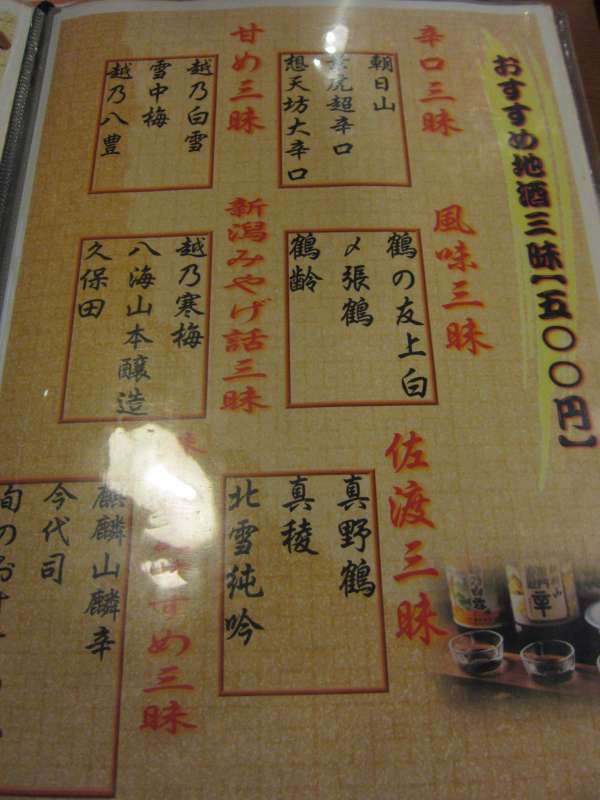 おすすめ地酒三昧【一五〇〇円】
辛口三昧
朝日山
超辛口
想天坊大辛口
甘め三昧
越乃白雪
雪中梅
越乃八豊
風味三昧
鶴の友上白
〆張鶴
鶴齢
新潟みやげ話三昧
越乃寒梅
八海山本醸造
久保田
佐渡三昧
真野鶴
真稜
北雪純吟
すめ三昧
麒麟山麟辛
今代司
旬のおすす